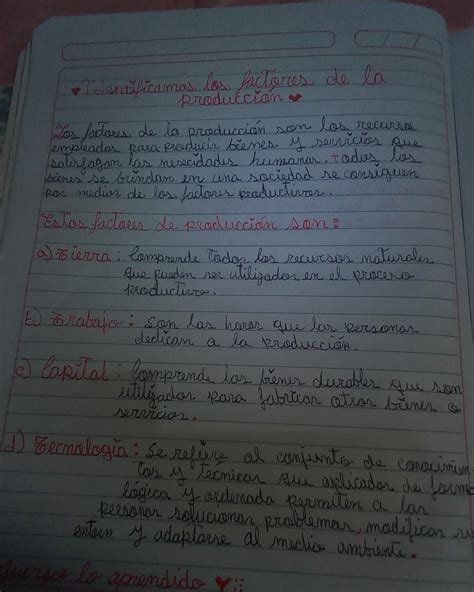 Identificamos los factores de la
producción
Los factores de la producción son los recursos
empleados para producir bienes y servicios que
satisfagan las nesecidades humanas. todos los
bienes se brindan en una sociedad se consiguen
por medios de los factores productivos.
Estos factores de producción son:
a) Tierra: Comprende todos los recursos naturales
que pueden ser utilizados en el proceso
productivo.
b) Trabajo: Son las horas que las personas
dedican a la producción.
c) Capital: Comprende los bienes durables que son
utilizados para fabricar otros bienes o
servicios.
d) Tecnología: Se refiere al conjunto de conocimien
tos y técnicas que aplicados de forma
lógica y ordenada permiten a las
personas solucionar problemas, modificar su
entorn y adaptarse al medio ambiente.
fuerzo lo aprendido